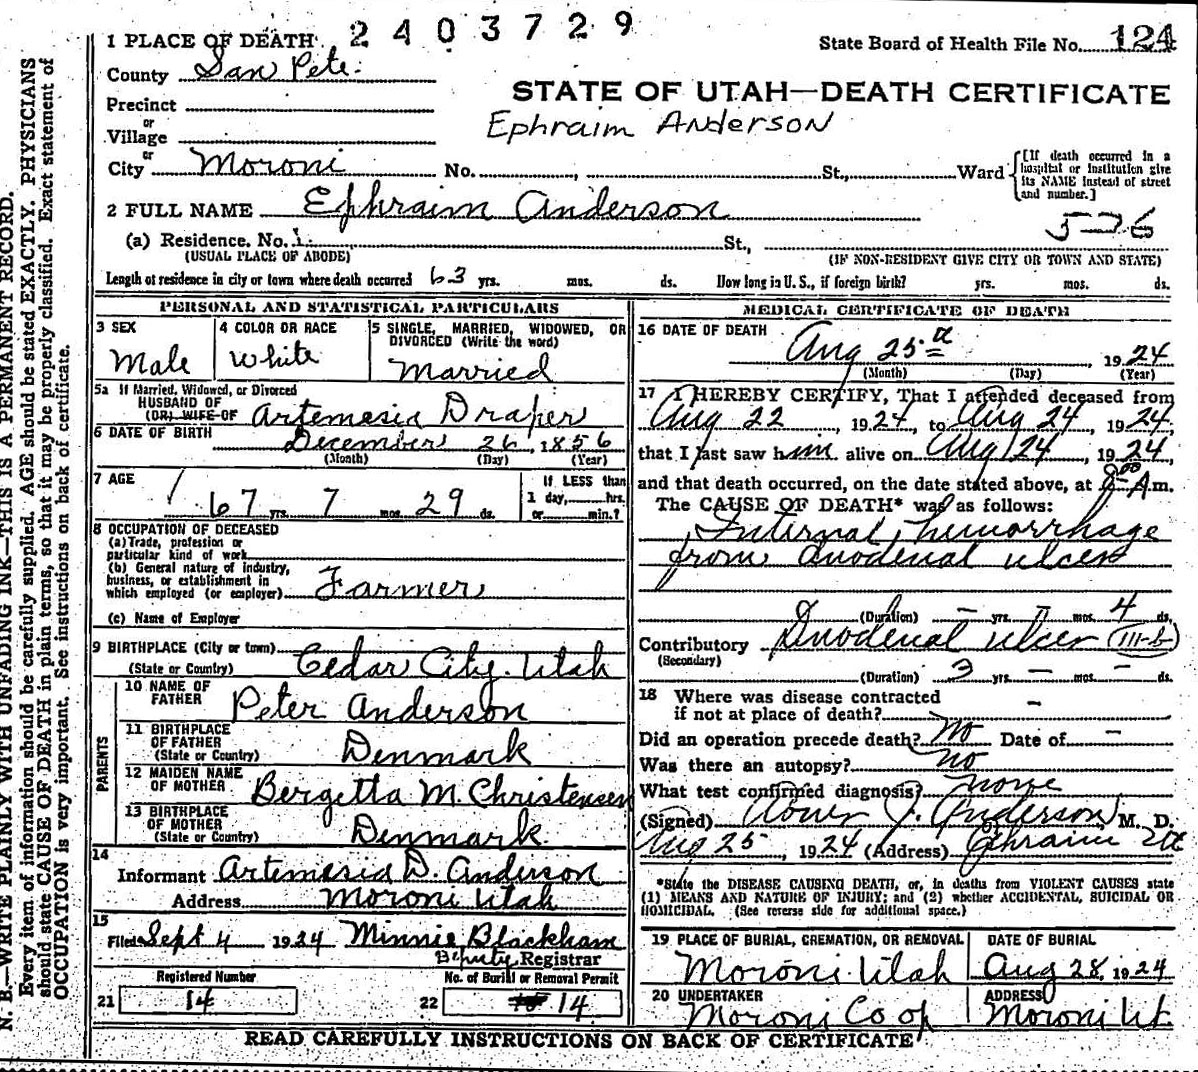 2403729
1 PLACE OF DEATH
State Board of Health File No. 124
County San Pete.
STATE OF UTAH—DEATH CERTIFICATE
Precinct
Ephraim Anderson
or
Village
or
City Moroni No. , St., Ward
[If death occurred in a hospital or institution give its NAME instead of street and number.]
2 FULL NAME Ephraim Anderson
576
(a) Residence. No. St.,
(USUAL PLACE OF ABODE) (IF NON-RESIDENT GIVE CITY OR TOWN AND STATE)
Length of residence in city or town where death occurred 63 yrs. mos. ds. How long in U. S., if foreign birth? yrs. mos. ds.
PERSONAL AND STATISTICAL PARTICULARS
3 SEX
Male
4 COLOR OR RACE
White
5 SINGLE, MARRIED, WIDOWED, OR
DIVORCED (Write the word)
Married
5a If Married, Widowed, or Divorced
HUSBAND OF
(OR) WIFE OF Artemesia Draper
6 DATE OF BIRTH December 26, 1856
(Month) (Day) (Year)
7 AGE
67 yrs. 7 mos. 29 ds.
If LESS than
1 day, hrs.
or min.?
8 OCCUPATION OF DECEASED
(a) Trade, profession or
particular kind of work
(b) General nature of industry,
business, or establishment in
which employed (or employer) Farmer
(c) Name of Employer
9 BIRTHPLACE (City or town)
(State or Country) Cedar City. Utah
PARENTS
10 NAME OF
FATHER Peter Anderson
11 BIRTHPLACE
OF FATHER
(State or Country) Denmark
12 MAIDEN NAME
OF MOTHER Bergetta M. Christensen
13 BIRTHPLACE
OF MOTHER
(State or Country) Denmark.
14
Informant Artemesia D. Anderson
Address Moroni Utah
15
Filed Sept 4 1924 Minnie Blackham
Deputy Registrar
Registered Number
21 14
No. of Burial or Removal Permit
22 14
MEDICAL CERTIFICATE OF DEATH
16 DATE OF DEATH
Aug 25 1924
(Month) (Day) (Year)
17 I HEREBY CERTIFY, That I attended deceased from
Aug 22, 1924, to Aug 24, 1924,
that I last saw him alive on Aug 24, 1924,
and that death occurred, on the date stated above, at A m.
The CAUSE OF DEATH* was as follows:
Internal hemorrhage
from duodenal ulcer
(Duration) — yrs. — mos. 4 ds.
Contributory Duodenal ulcer (III-b)
(Secondary)
(Duration) 3 yrs. — mos. — ds.
18 Where was disease contracted
if not at place of death? -
Did an operation precede death? No Date of -
Was there an autopsy? no
What test confirmed diagnosis? none
(Signed) J. Anderson, M. D.
Aug 25, 1924 (Address) Ephraim Ut
*State the DISEASE CAUSING DEATH, or, in deaths from VIOLENT CAUSES state
(1) MEANS AND NATURE OF INJURY; and (2) whether ACCIDENTAL, SUICIDAL OR
HOMICIDAL. (See reverse side for additional space.)
19 PLACE OF BURIAL, CREMATION, OR REMOVAL
Moroni Utah
DATE OF BURIAL
Aug 28, 1924
20 UNDERTAKER
Moroni Co op
ADDRESS
Moroni Ut.
READ CAREFULLY INSTRUCTIONS ON BACK OF CERTIFICATE
N. B.—WRITE PLAINLY WITH UNFADING INK—THIS IS A PERMANENT RECORD.
Every item of information should be carefully supplied. AGE should be stated EXACTLY. PHYSICIANS
should state CAUSE OF DEATH in plain terms, so that it may be properly classified. Exact statement of
OCCUPATION is very important. See instructions on back of certificate.